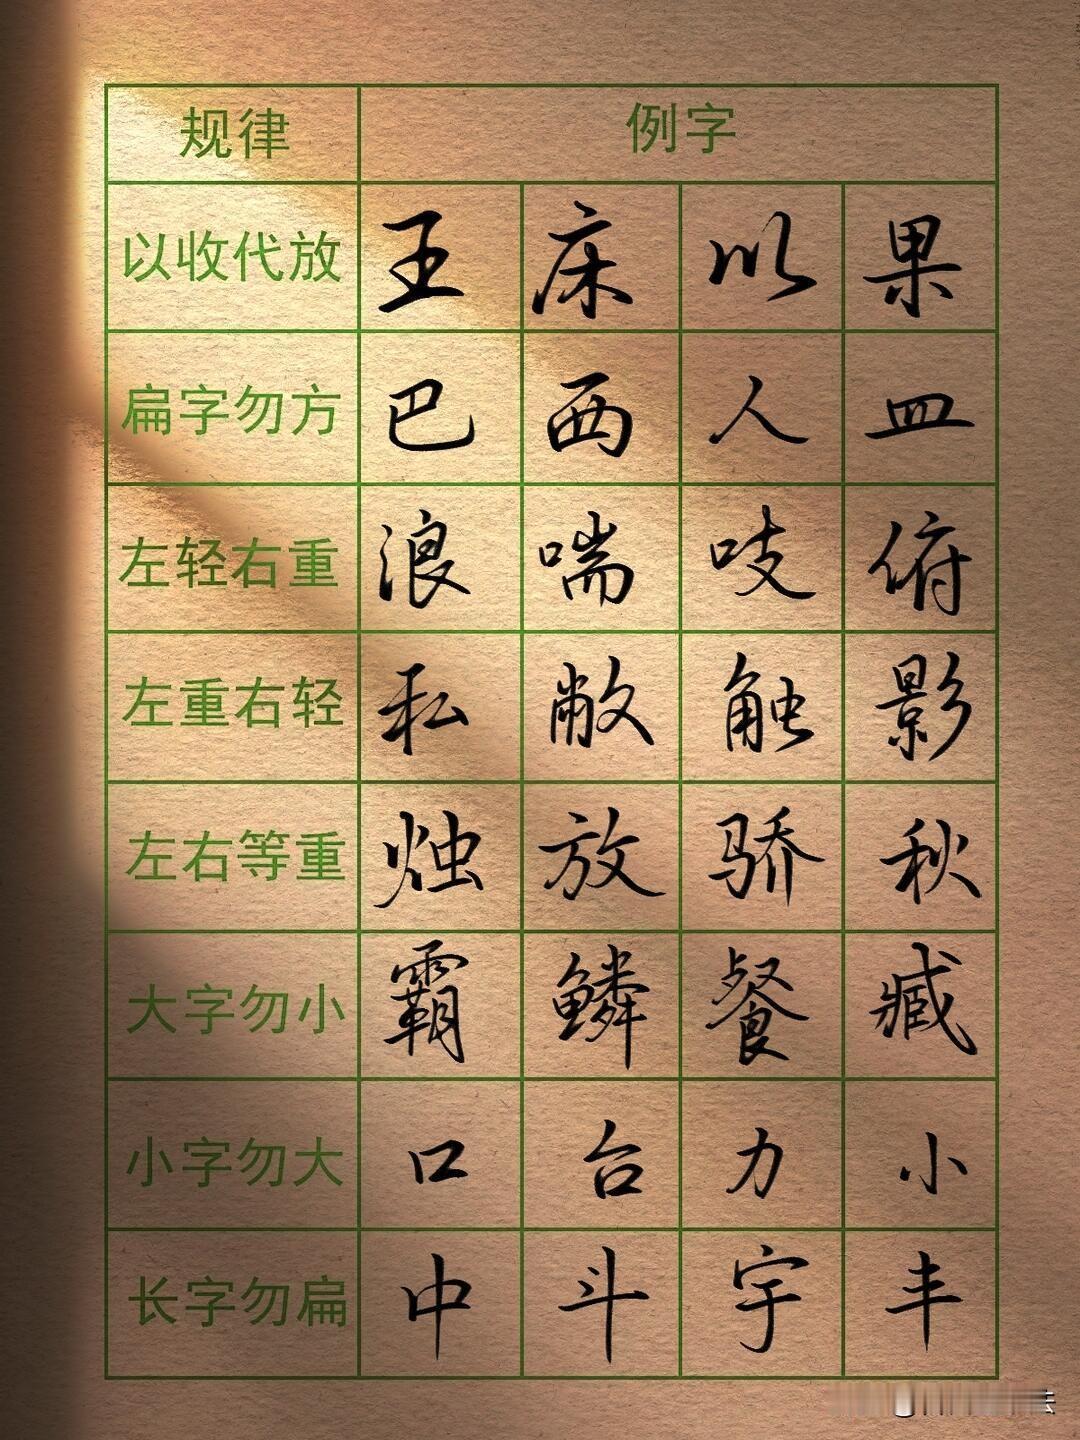 规律 例字
以收代放 王 床 以 果
扁字勿方 巴 西 人 皿
左轻右重 浪 喘 吱 俯
左重右轻 私 敝 触 影
左右等重 烛 放 骄 秋
大字勿小 霸 鳞 餐 臧
小字勿大 口 台 力 小
长字勿扁 中 斗 宇 丰